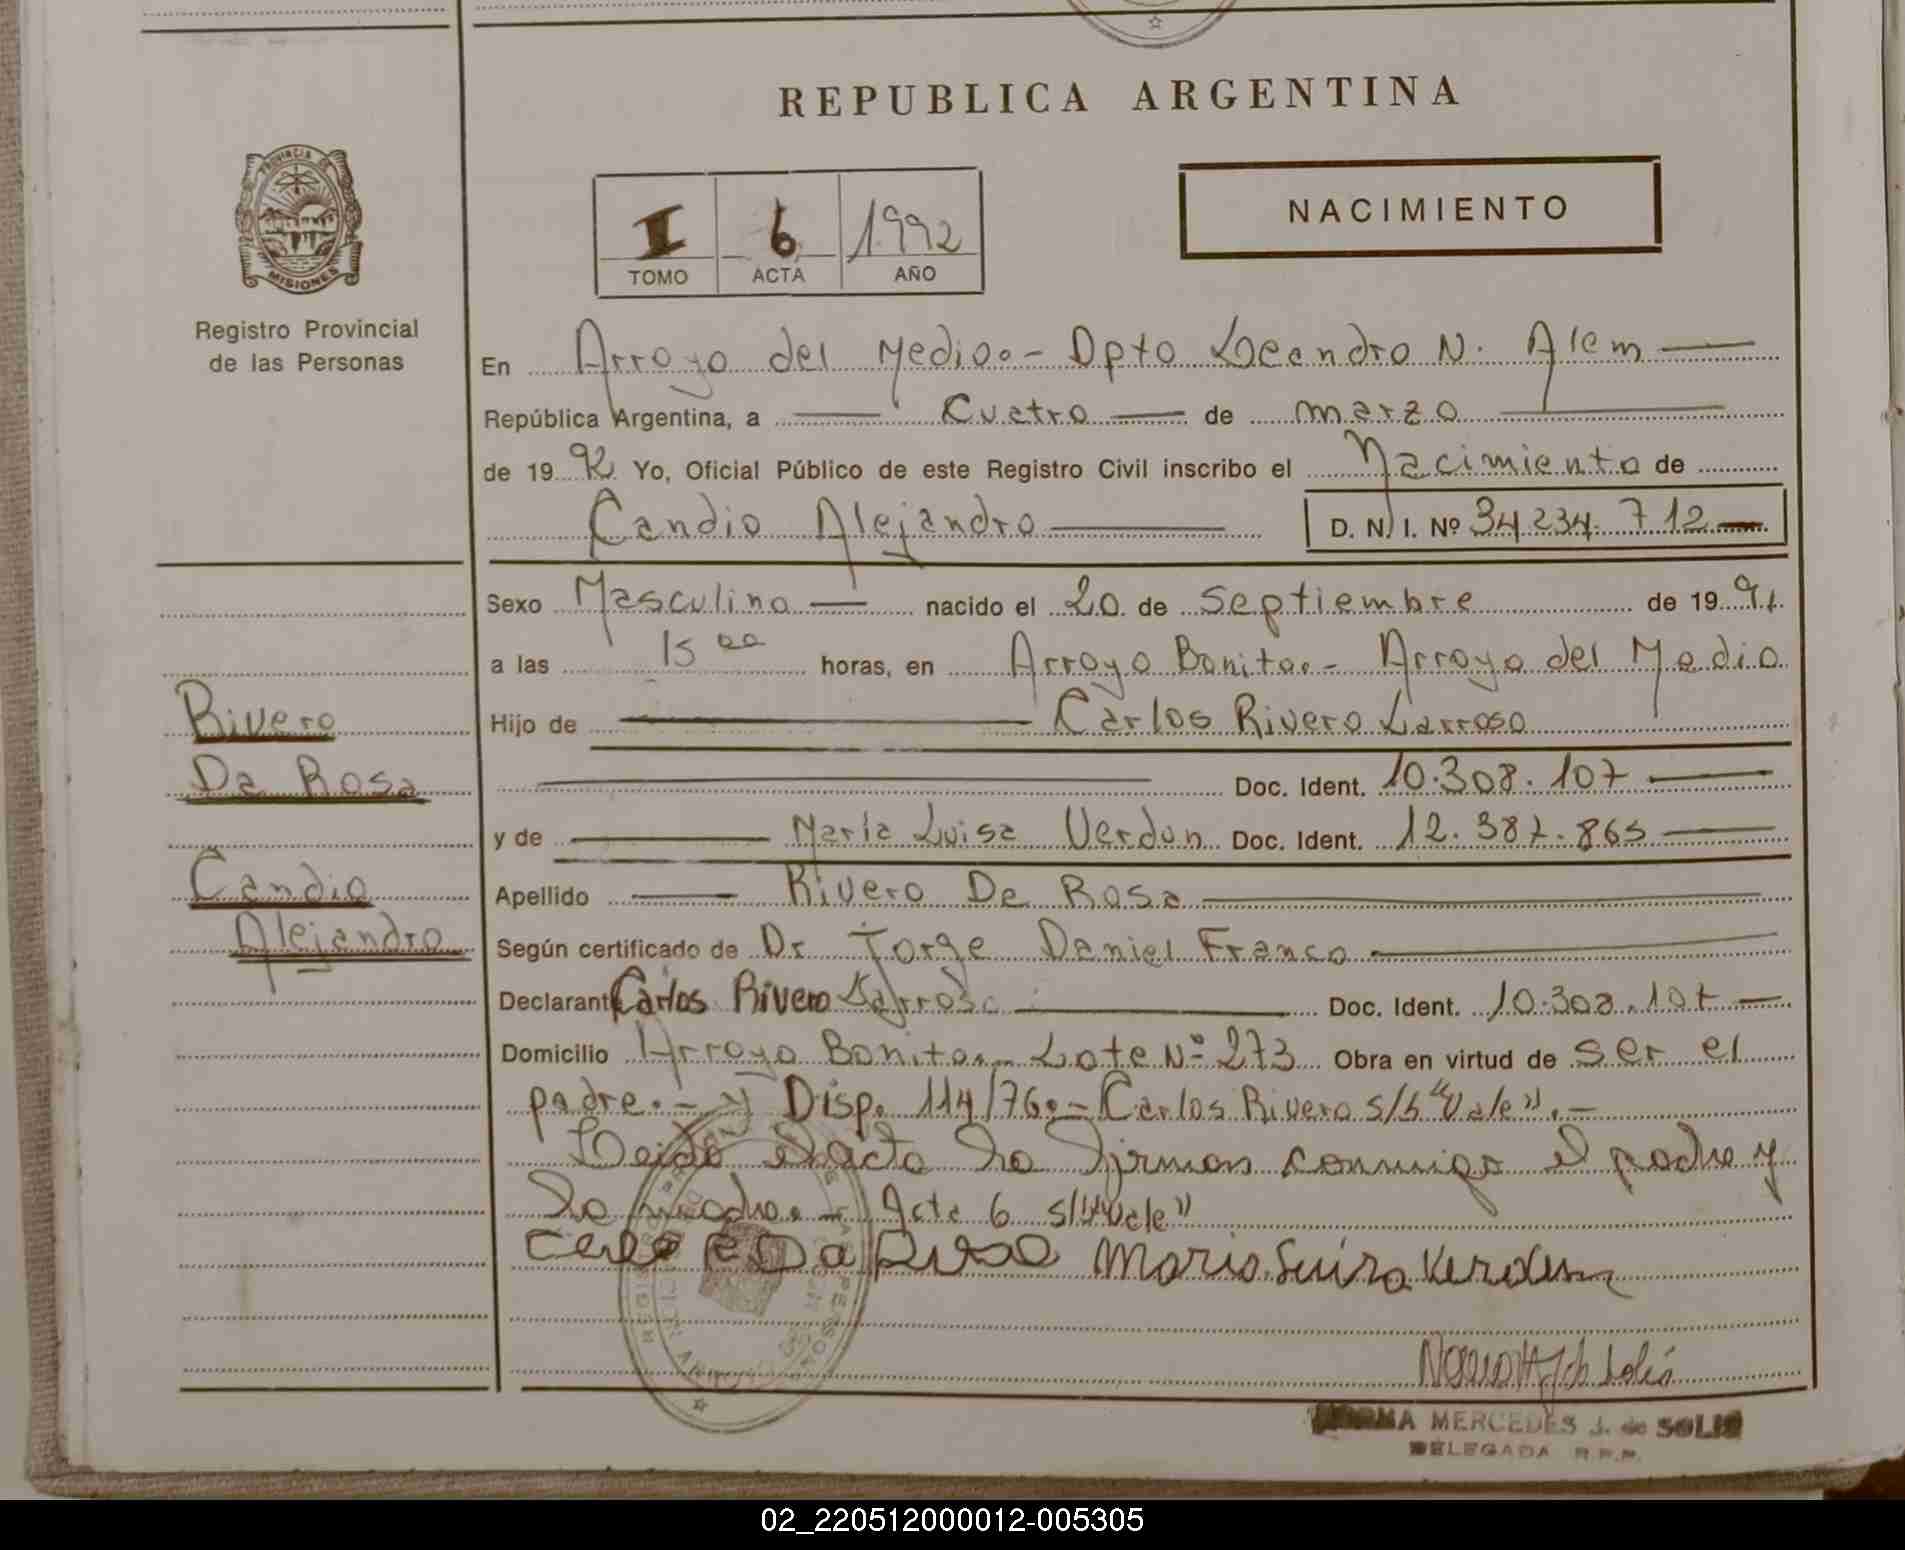 REPUBLICA ARGENTINA
PROVINCIA DE
MISIONES
Registro Provincial
de las Personas
I 6 1992
TOMO ACTA AÑO
NACIMIENTO
En Arroyo del Medio.- Dpto Leandro N. Alem
República Argentina, a Cuatro de marzo
de 1992 Yo, Oficial Público de este Registro Civil inscribo el Nacimiento de
Candio Alejandro D. N. I. Nº 34.234.712
Sexo Masculino nacido el 20 de Septiembre de 1991
a las 15 00 horas, en Arroyo Bonito.- Arroyo del Medio
Hijo de Carlos Rivero Larroso
Doc. Ident. 10.308.107
y de María Luisa Verdun Doc. Ident. 12.387.865
Apellido Rivero De Rosa
Según certificado de Dr Jorge Daniel Franco
Declarante Carlos Rivero Larrosa Doc. Ident. 10.308.107
Domicilio Arroyo Bonito.- Lote Nº 273 Obra en virtud de ser el
padre.- y Disp. 114/76.- Carlos Rivero s/b "Vale".-
Leido el acta la firman conmigo el padre y
la madre.- Acta 6 s/b "Vale"
Rivero
De Rosa
Candio
Alejandro
Maria Luisa Verdun
NORMA MERCEDES J. de SOLIS
DELEGADA R.P.P.
02_220512000012-005305